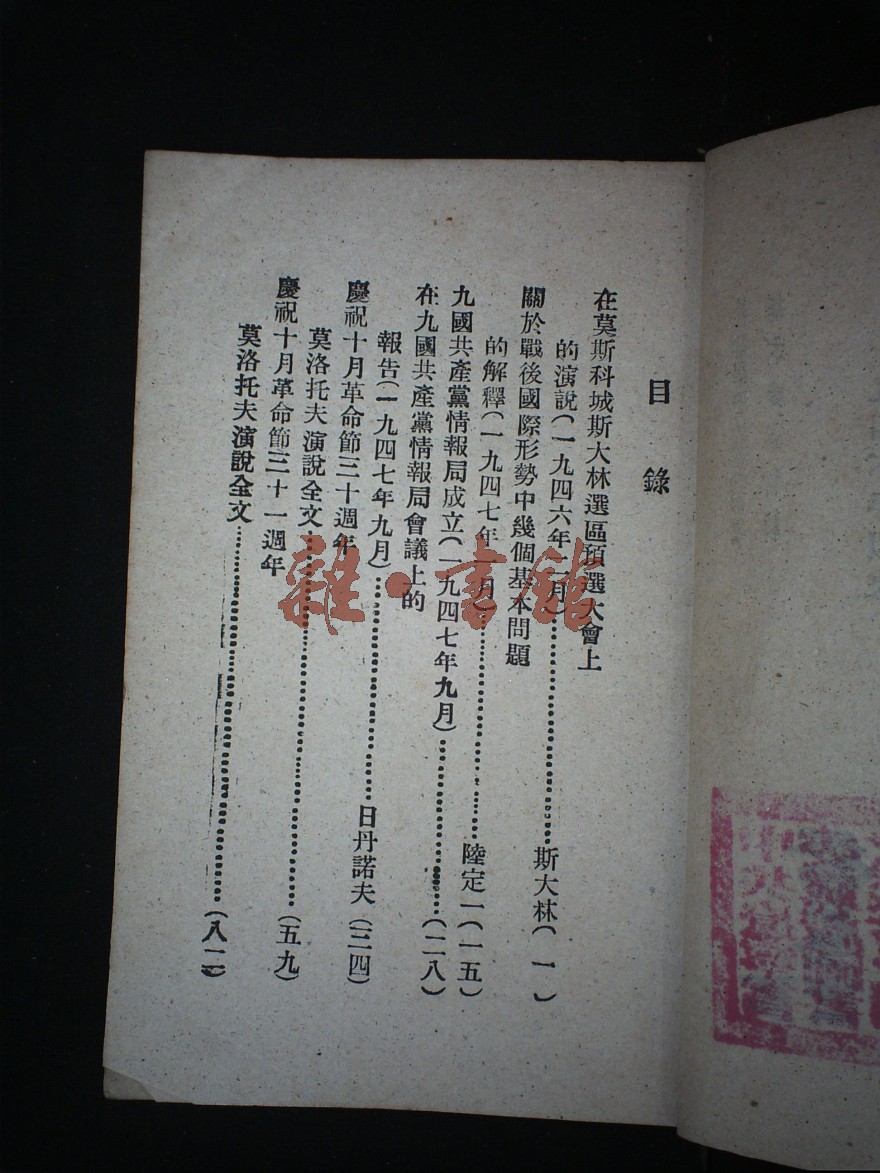 目錄
在莫斯科城斯大林選區預選大會上
的演說(一九四六年二月)……斯大林(一)
關於戰後國際形勢中幾個基本問題
的解釋(一九四七年一月)……陸定一(一五)
九國共產黨情報局成立(一九四七年九月)……(二八)
在九國共產黨情報局會議上的
報告(一九四七年九月)……日丹諾夫(三四)
慶祝十月革命節三十週年
莫洛托夫演說全文……(五九)
慶祝十月革命節三十一週年
莫洛托夫演說全文……(八二)
雜·書館